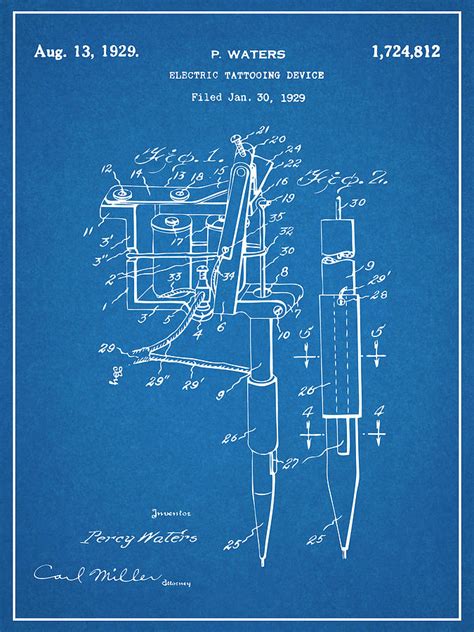 Aug. 13, 1929. P. WATERS 1,724,812
ELECTRIC TATTOOING DEVICE
Filed Jan. 30, 1929
Fig. 1.
Fig. 2.
21
20
24
22
12
14
13
18
15
16
19
30
11
17
35
32
3'
3"
2
30
9
29'
28
1
33
34
8
3
5
4
6
10
5
5
29
29"
29'
9
26
4
4
26
27
25
25
Inventor
Percy Waters
Carl Miller
Attorney